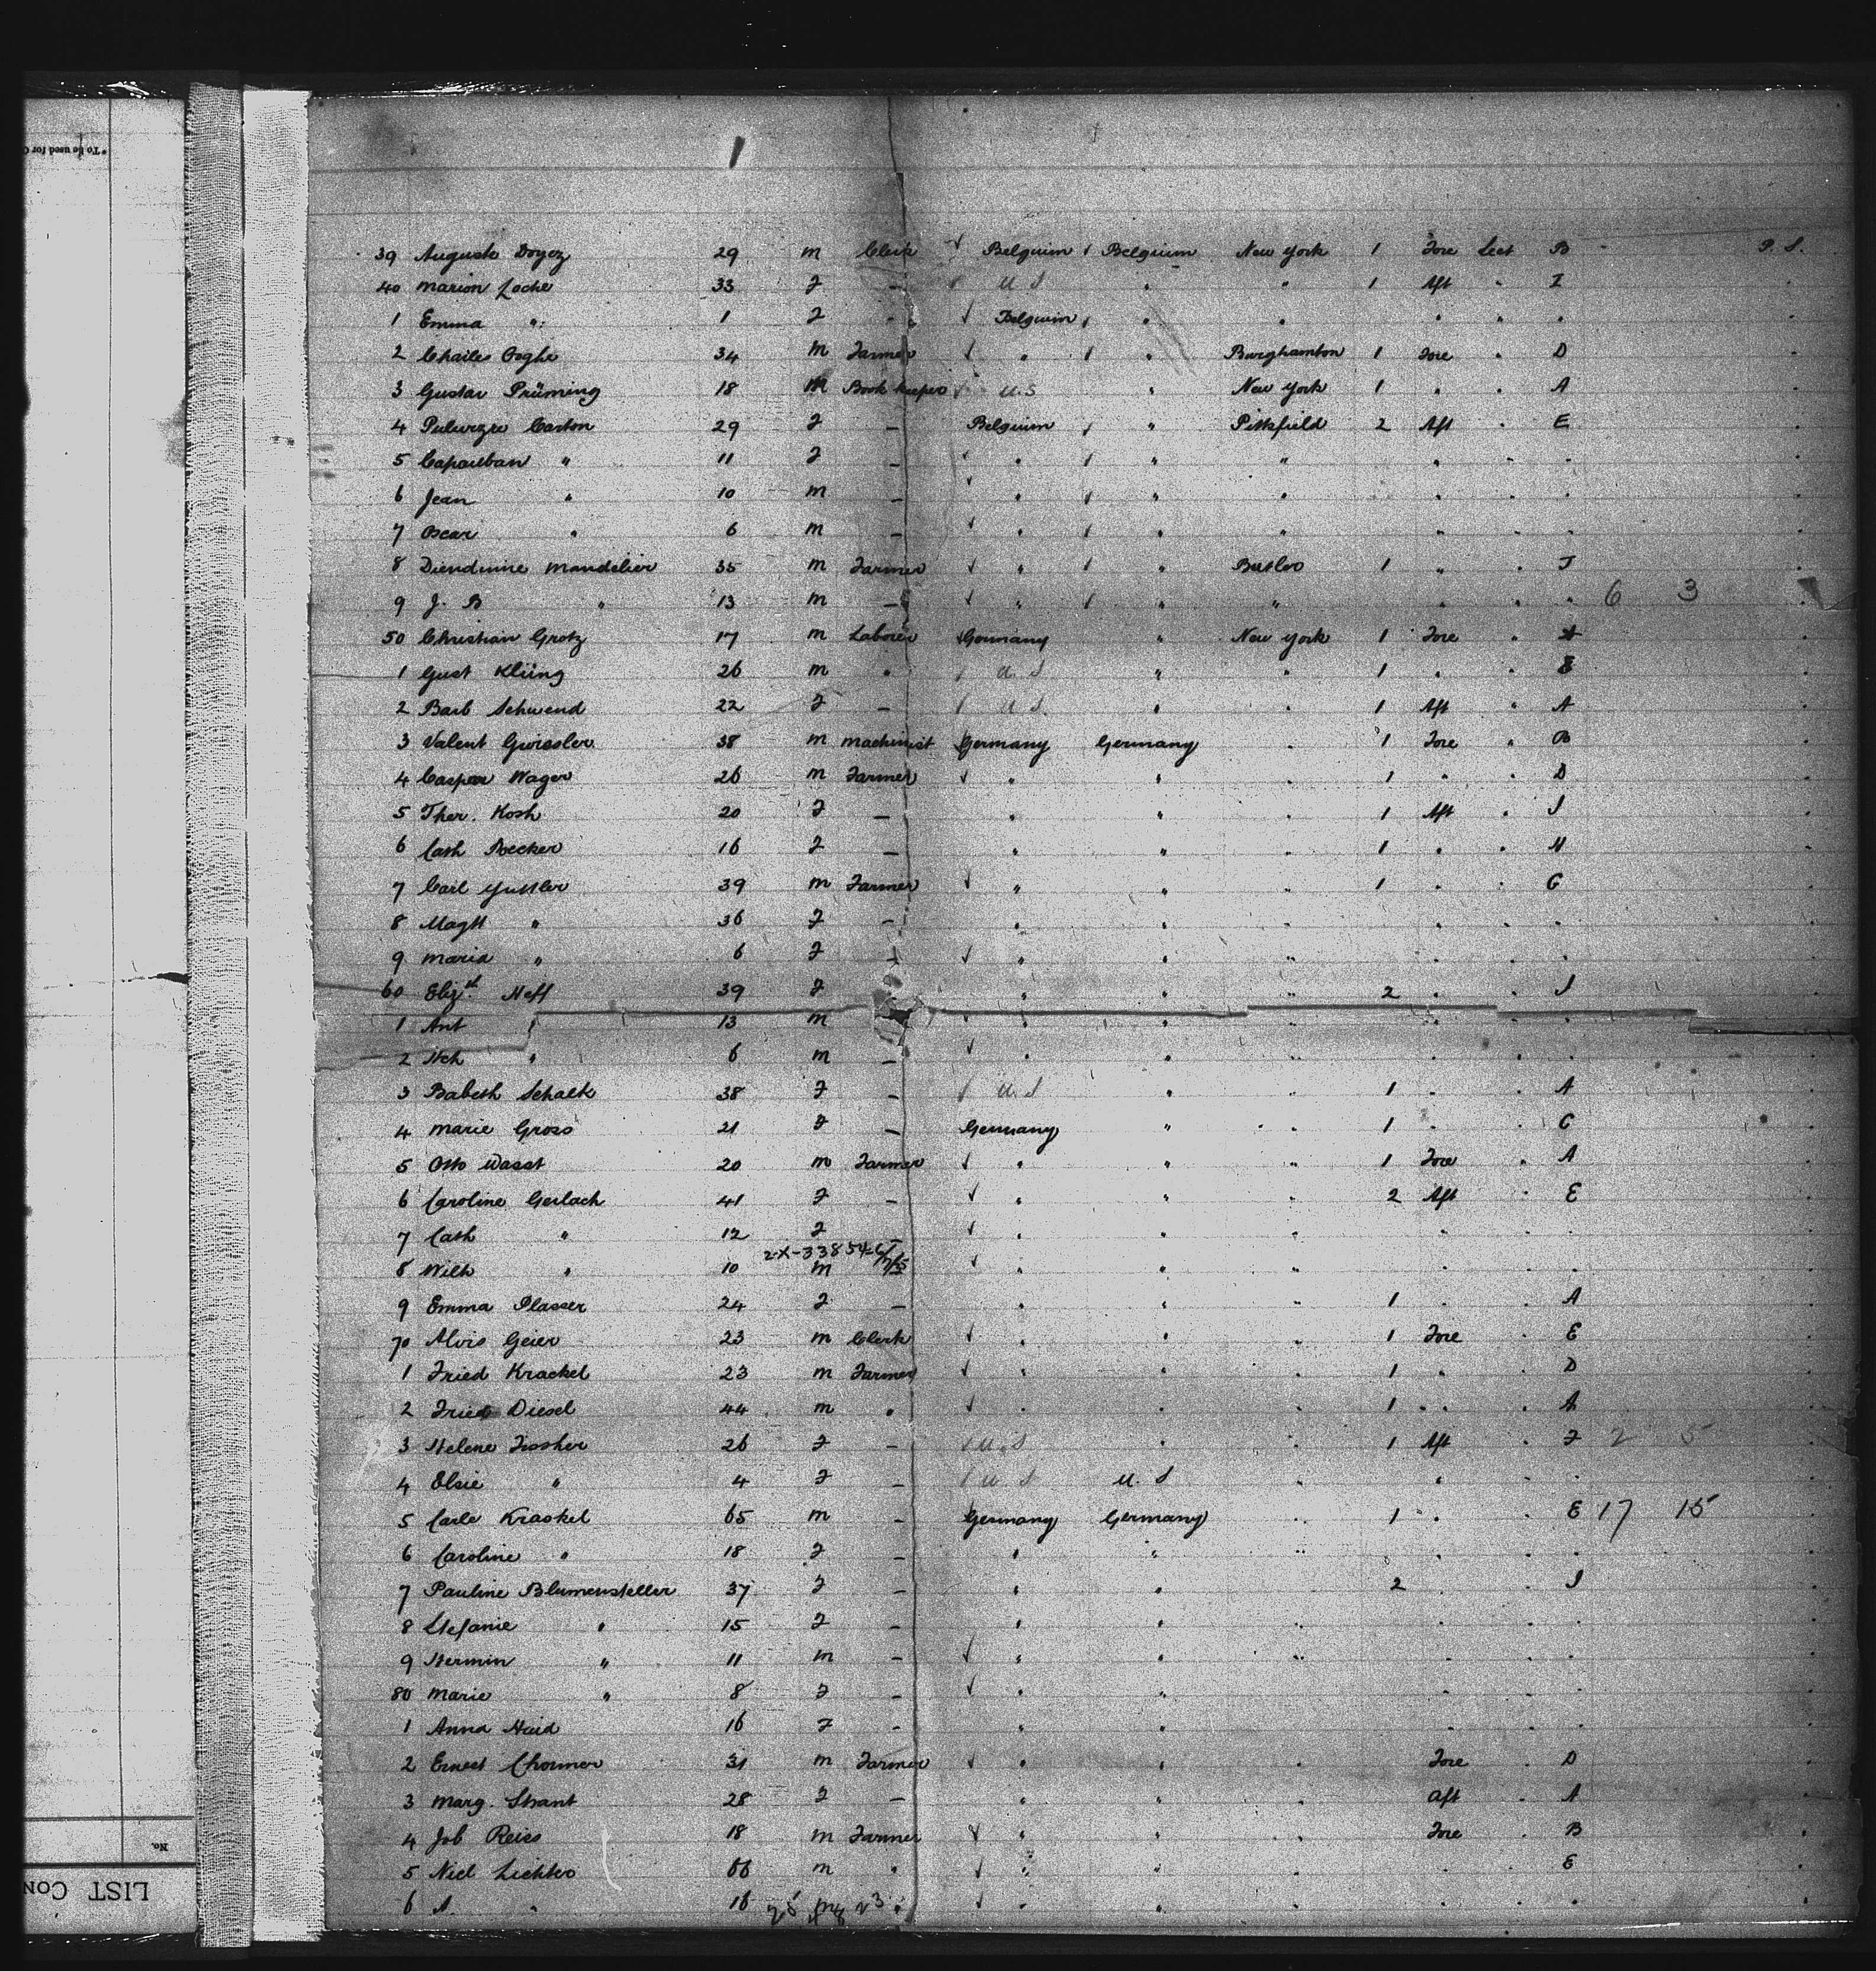 * To be used for
39 Auguste Doyez 29 m Clerk Belguim Belguim New York 1 Fore Sect B P. S.
40 Marion Loche 33 F - U S " " 1 Aft " I
1 Emma " 1 F - Belguim " " " " "
2 Charles 34 m Farmer " " 1 Fore " D
3 Gustav Prüming 18 m Book keeper U.S " New York 1 " " A
4 Carton 29 F - Belguim " Pittsfield 2 Aft " E
5 " 11 F - " " " " " "
6 Jean " 10 m - " " " " " "
7 Oscar " 6 m - " " " " " "
8 Mandelier 35 m Farmer " " Butler 1 " " J
9 J. B " 13 m - " " " " " " 6 3
50 Christian Grotz 17 m Laborer Germany " New York 1 Fore " A
1 Gust Klüng 26 m " U. S " " 1 " " E
2 Barb Schwend 22 F - U S. " " 1 Aft " A
3 Valent 38 m Machinist Germany Germany " 1 Fore " B
4 Casper Wager 26 m Farmer " " " 1 " " D
5 Ther. Kosh 20 F - " " " 1 Aft " I
6 Cath Becker 16 F - " " " 1 " " H
7 Carl 39 m Farmer " " " 1 " " G
8 Magtt " 36 F - " " " " " "
9 Maria " 6 F - " " " " " "
60 Elizt. Neff 39 F " " " 2 " " I
1 Ant " 13 m " " " " " "
2 Hch " 6 m - " " " " " "
3 Babeth Schalk 38 F - U. S " " 1 " A
4 Marie Gross 21 F - Germany " " 1 " C
5 Otto Wasst 20 m Farmer " " " 1 Fore " A
6 Caroline Gerlach 41 F - " " " 2 Aft " E
7 Cath " 12 F - " " " " " "
2-X-33854
8 Wilh " 10 m " " " " " "
9 Emma Plasser 24 F - " " " 1 " " A
70 Alois Geier 23 m Clerk " " " 1 Fore " E
1 Fried Krackel 23 m Farmer " " " 1 " D
2 Fried Diesel 44 m " " " " 1 " " A
3 Helene Fissher 26 F - U. S " " 1 Aft " F 2 5
4 Elsie " 4 F - U S U. S " " " "
5 Carle Kraokel 65 m - Germany Germany " 1 " " E 17 15
6 Caroline " 18 F - " " " " " "
7 Pauline Blumensteller 37 F - " " 2 " I
8 Stefanie " 15 F - " " " " " "
9 Hermin " 11 m - " " " " " "
80 Marie " 8 F - " " " " "
1 Anna 16 F - " " " " "
2 Ernest 31 m Farmer " " " Fore " D
3 Marg. Shant 28 F - " " " Aft " A
4 Job Reiss 18 m Farmer " " " Fore " B
5 Niel Lichter 66 m " " " " " " E
6 A. " 16 " " " " " "
No.
LIST CON